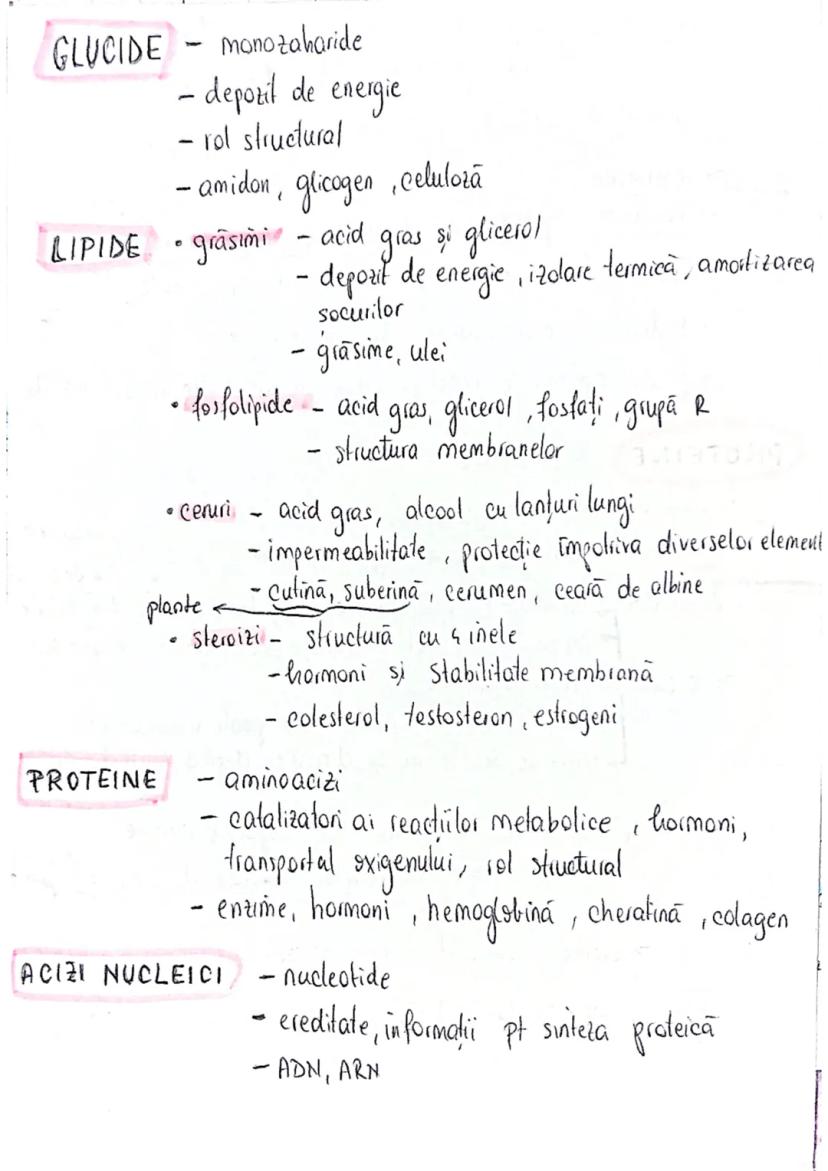 GLUCIDE - monozaharide
- depozit de energie
- rol structural
- amidon, glicogen, celuloză
LIPIDE • grăsimi - acid gras și glicerol
- depozit de energie, izolare termică, amortizarea
șocurilor
- grăsime, ulei
• fosfolipide - acid gras, glicerol, fosfați, grupă R
- structura membranelor
• ceruri - acid gras, alcool cu lanțuri lungi
- impermeabilitate, protecție împotriva diverselor element
- cutină, suberină, cerumen, ceară de albine
plante ←
• steroizi - structură cu 4 inele
- hormoni și stabilitate membrană
- colesterol, testosteron, estrogeni
PROTEINE - aminoacizi
- catalizatori ai reacțiilor metabolice, hormoni,
transportal oxigenului, rol structural
- enzime, hormoni, hemoglobină, cheratină, colagen
ACIZI NUCLEICI - nucleotide
- ereditate, informații pt sinteza proteică
- ADN, ARN